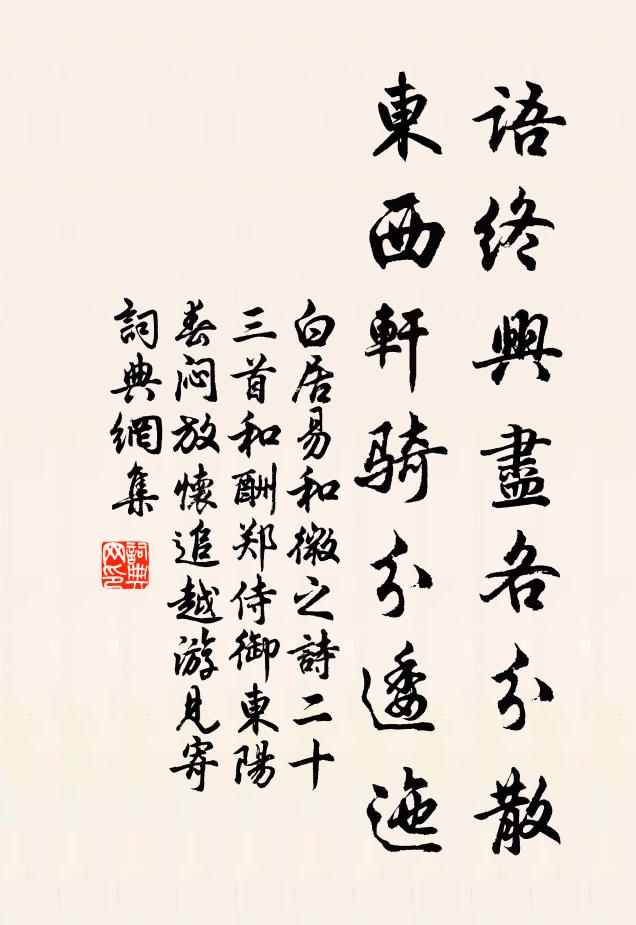 語終興盡各分散
東西軒騎分逶迤
白居易和微之詩二十
三首和酬郑侍御東陽
春闷放懷追越游見寄
詞典網集
詞典
网印